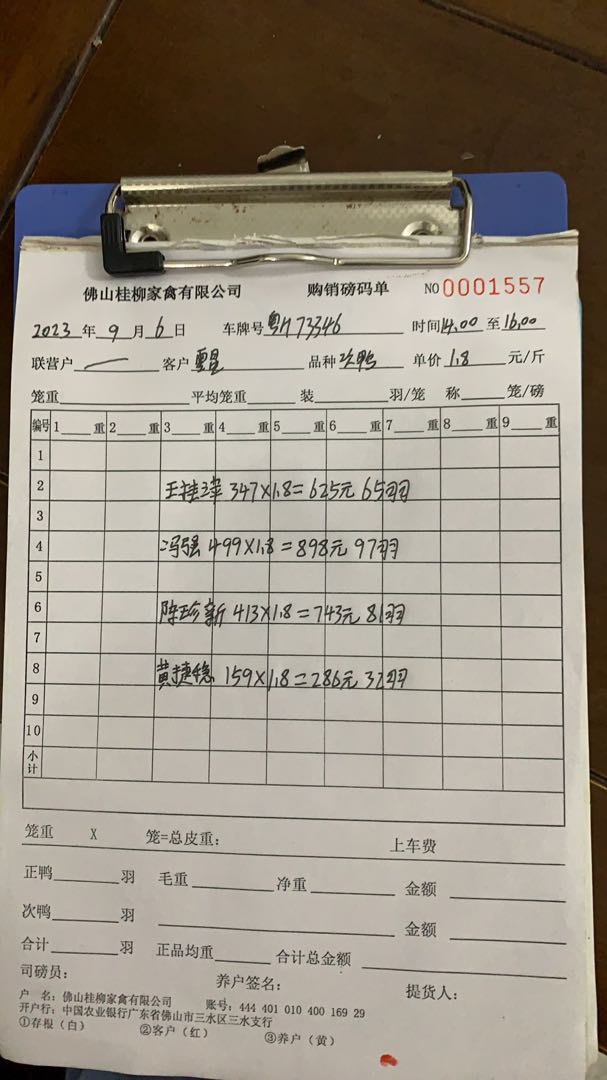 佛山桂柳家禽有限公司 购销磅码单 NO 0001557
2023 年 9 月 6 日 车牌号 73346 时间 14.00 至 16.00
联营户 — 客户 品种 次鸭 单价 1.8 元/斤
笼重 平均笼重 装 羽/笼 称 笼/磅
编号 1 重 2 重 3 重 4 重 5 重 6 重 7 重 8 重 9 重
1
2 王桂 347×1.8=625元 65羽
3
4 冯强 499×1.8=898元 97羽
5
6 陈珍新 413×1.8=743元 81羽
7
8 黄捷稳 159×1.8=286元 32羽
9
10
小计
笼重 X 笼=总皮重: 上车费
正鸭 羽 毛重 净重 金额
次鸭 羽 金额
合计 羽 正品均重 合计总金额
司磅员: 养户签名: 提货人:
户 名: 佛山桂柳家禽有限公司 账号: 444 401 010 400 169 29
开户行: 中国农业银行广东省佛山市三水区三水支行
①存根（白） ②客户（红） ③养户（黄）